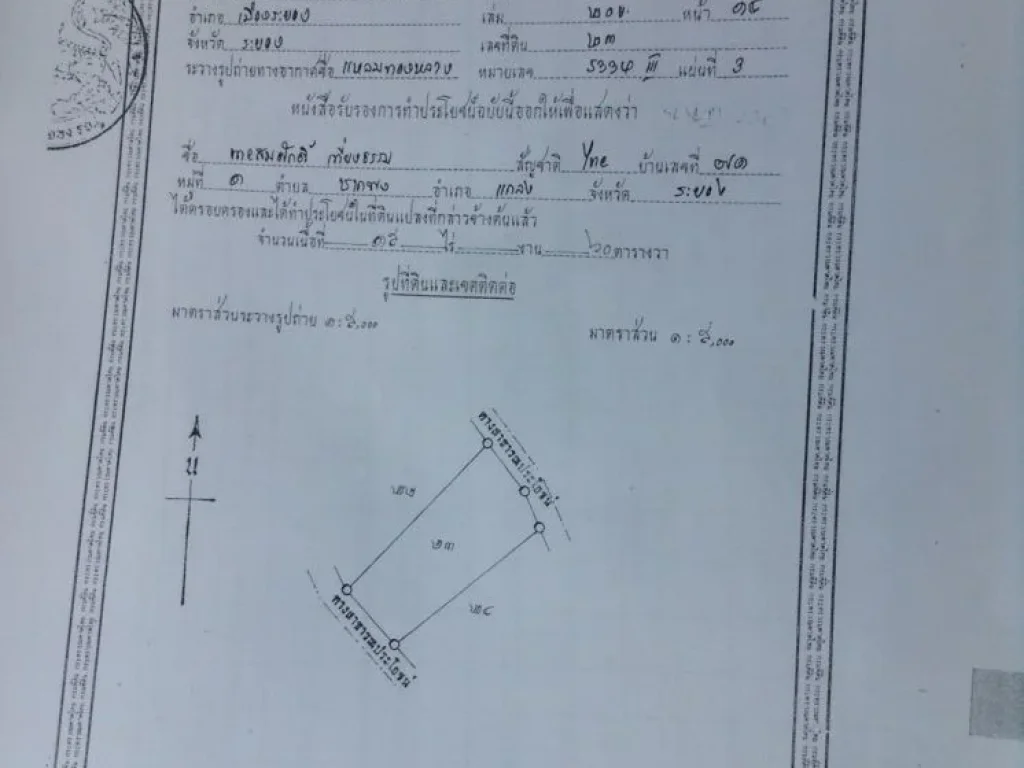 อำเภอ เมืองระยอง เล่ม ๒๐ข. หน้า ๑๕
จังหวัด ระยอง เลขที่ดิน ๒๓
ระวางรูปถ่ายทางอากาศชื่อ แหลมทองหลาง หมายเลข III แผ่นที่ 3
หนังสือรับรองการทำประโยชน์ฉบับนี้ออกให้เพื่อแสดงว่า
ชื่อ นายสมศักดิ์ เที่ยงธรรม สัญชาติ ไทย บ้านเลขที่ ๗๑
หมู่ที่ ๑ ตำบล อำเภอ แกลง จังหวัด ระยอง
ได้ครอบครองและได้ทำประโยชน์ในที่ดินแปลงที่กล่าวข้างต้นแล้ว
จำนวนเนื้อที่ ๑๕ ไร่ งาน ๖๐ ตารางวา
รูปที่ดินและเขตติดต่อ
มาตราส่วนระวางรูปถ่าย ๑:๕,๐๐๐
มาตราส่วน ๑ : ๕,๐๐๐
ทางสาธารณประโยชน์
น
๒๒
๒๓
๒๔
ทางสาธารณประโยชน์